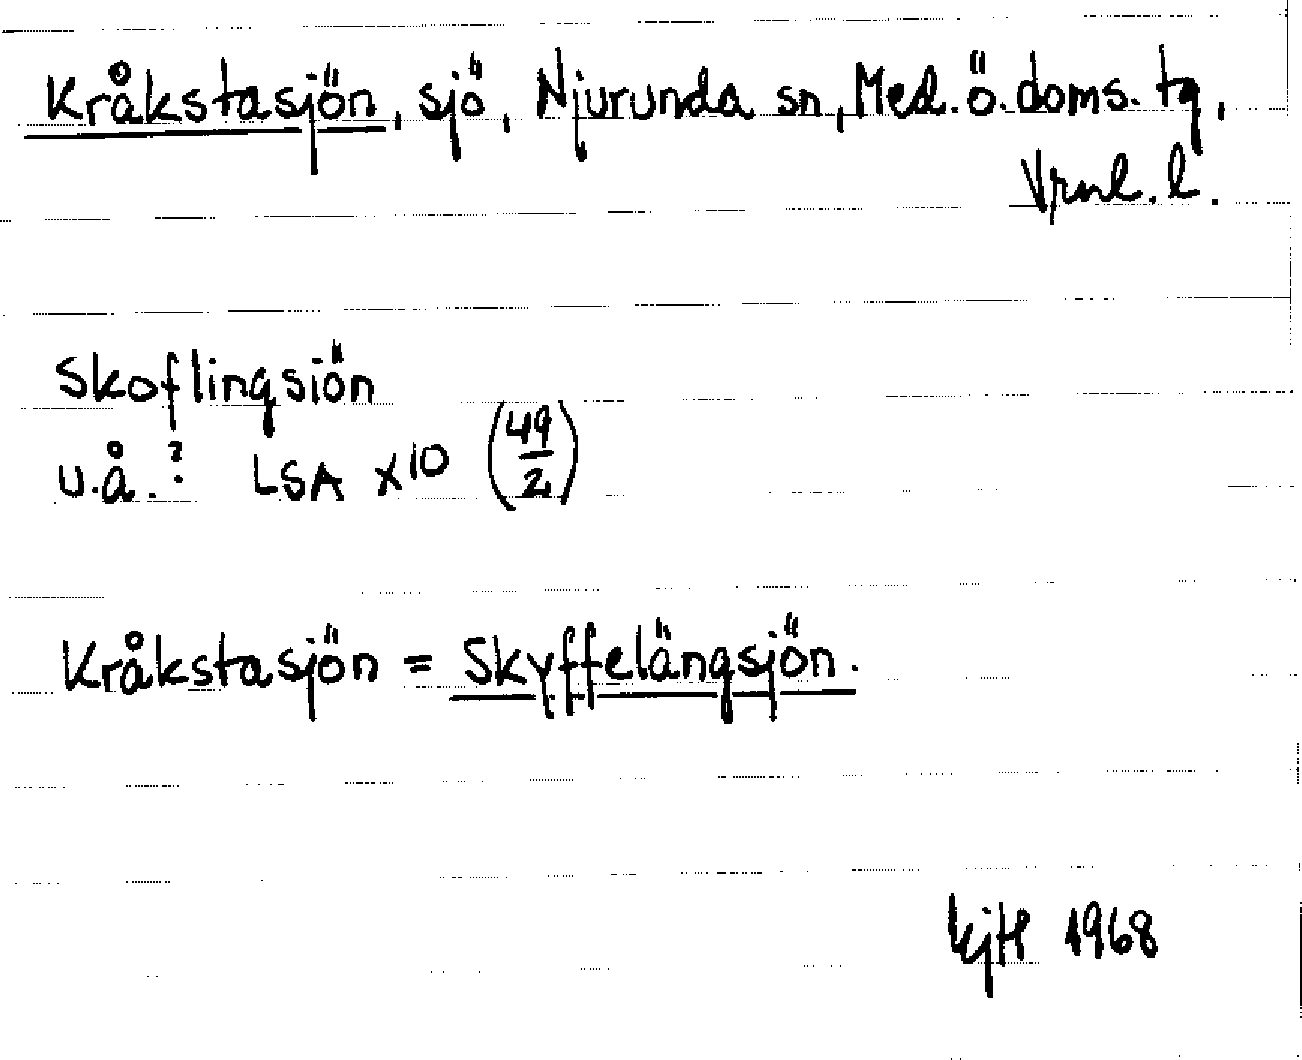 Kråkstasjön, sjö, Njurunda sn, Med. ö. doms. tg,
Vrnl. l.
Skoflingsiön
u.å.? LSA X10 (49/2)
Kråkstasjön = Skyffelängsjön.
KjH 1968